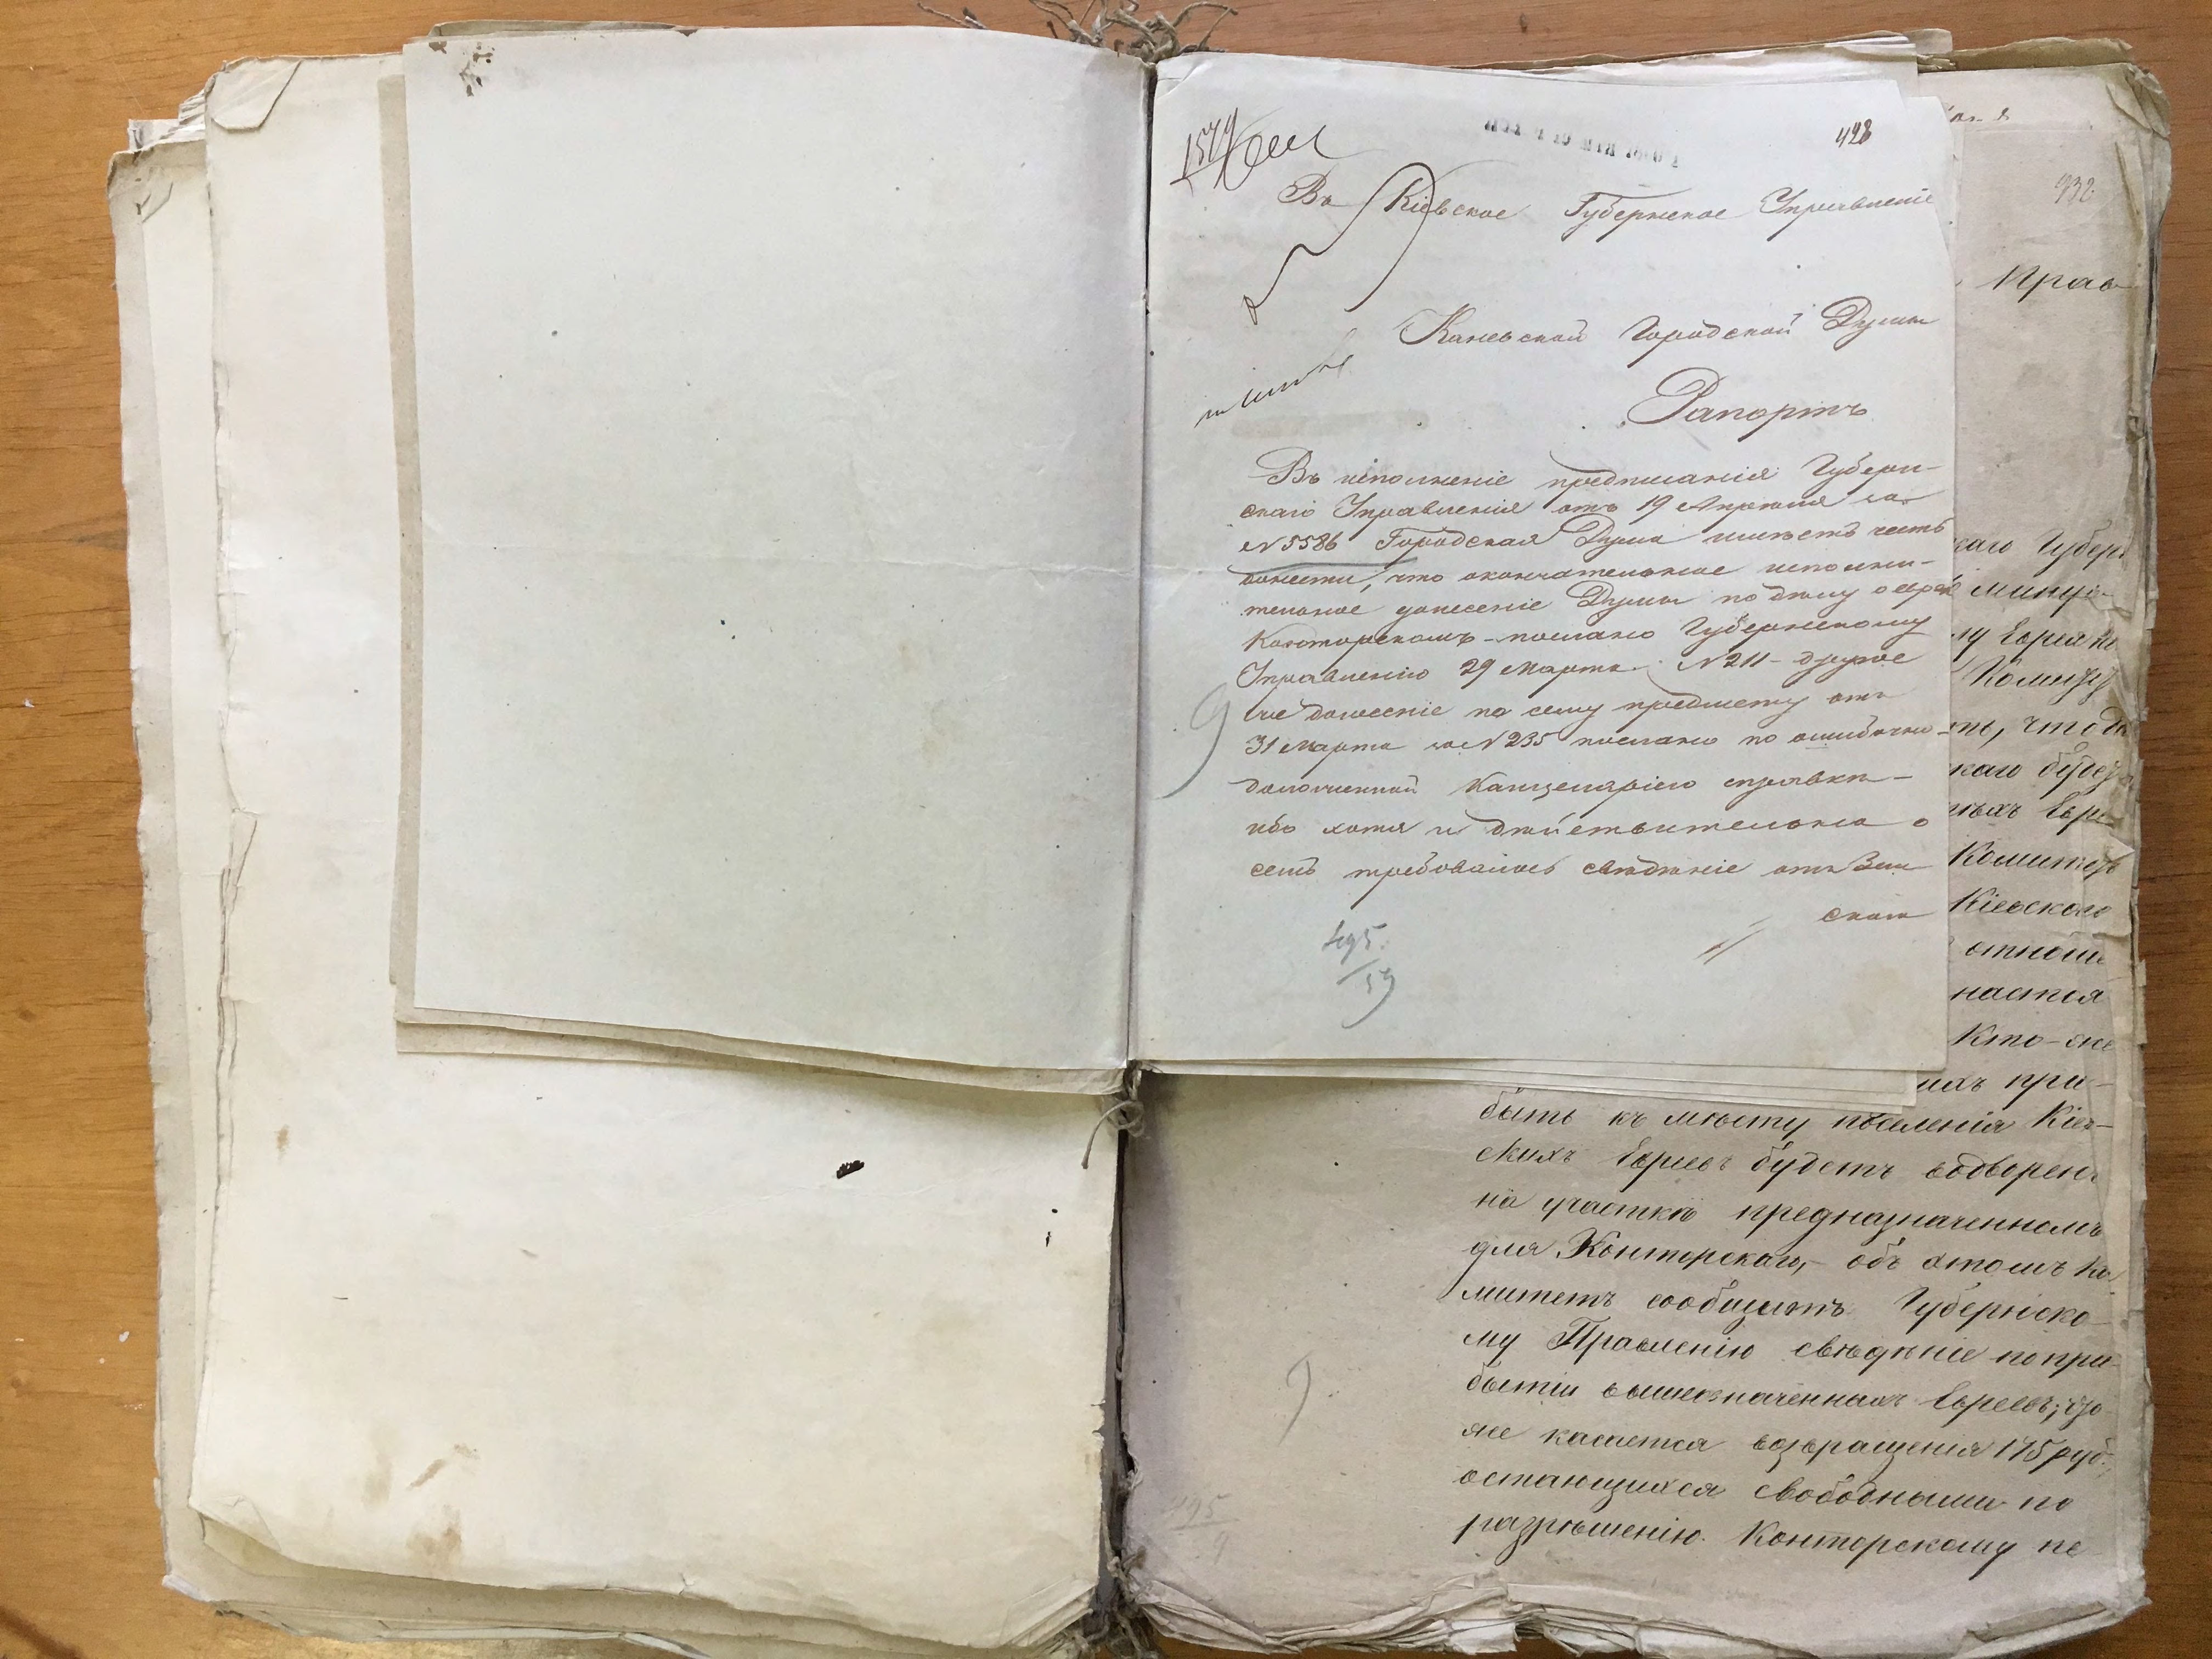 1579
428
Въ Кіевское Губернское Управленіе
Каневской Городской Думы
Рапортъ
Въ исполненіе предписанія Губерн-
скаго Управленія отъ 19 Апреля за
№ 5586 Городская Дума имѣетъ честь
донести, что окончательное исполни-
тельное донесеніе Думы по дѣлу о евреѣ
Конторскомъ - послано Губернскому
Управленію 29 Марта № 211 - другое
же донесеніе по сему предмету отъ
31 Марта за № 235 послано по ошибочно
доложенной Канцеляріею справки -
ибо хотя и дѣйствительно о
семъ требовалось свѣдѣніе отъ Зем
скаго
495
/59
932
Прав
скаго Губерн
минув
му Евреин
Комитет
ть, что
скаго будет
ныхъ Евре
Комитетъ
Кіевского
отноше
настоя
Кто-же
ихъ при-
быть къ мѣсту поселенія Кіев-
скихъ Евреевъ будетъ водворенъ
на участкѣ предназначенномъ
для Конторскаго, - объ этомъ Ко
митетъ сообщитъ Губернско-
му Правленію свѣдѣніе по при-
бытіи вышеозначенныхъ Евреевъ; что
же касается возвращенія 175 руб.
остающихся свободными по
разрѣшенію Конторскому не
495
9